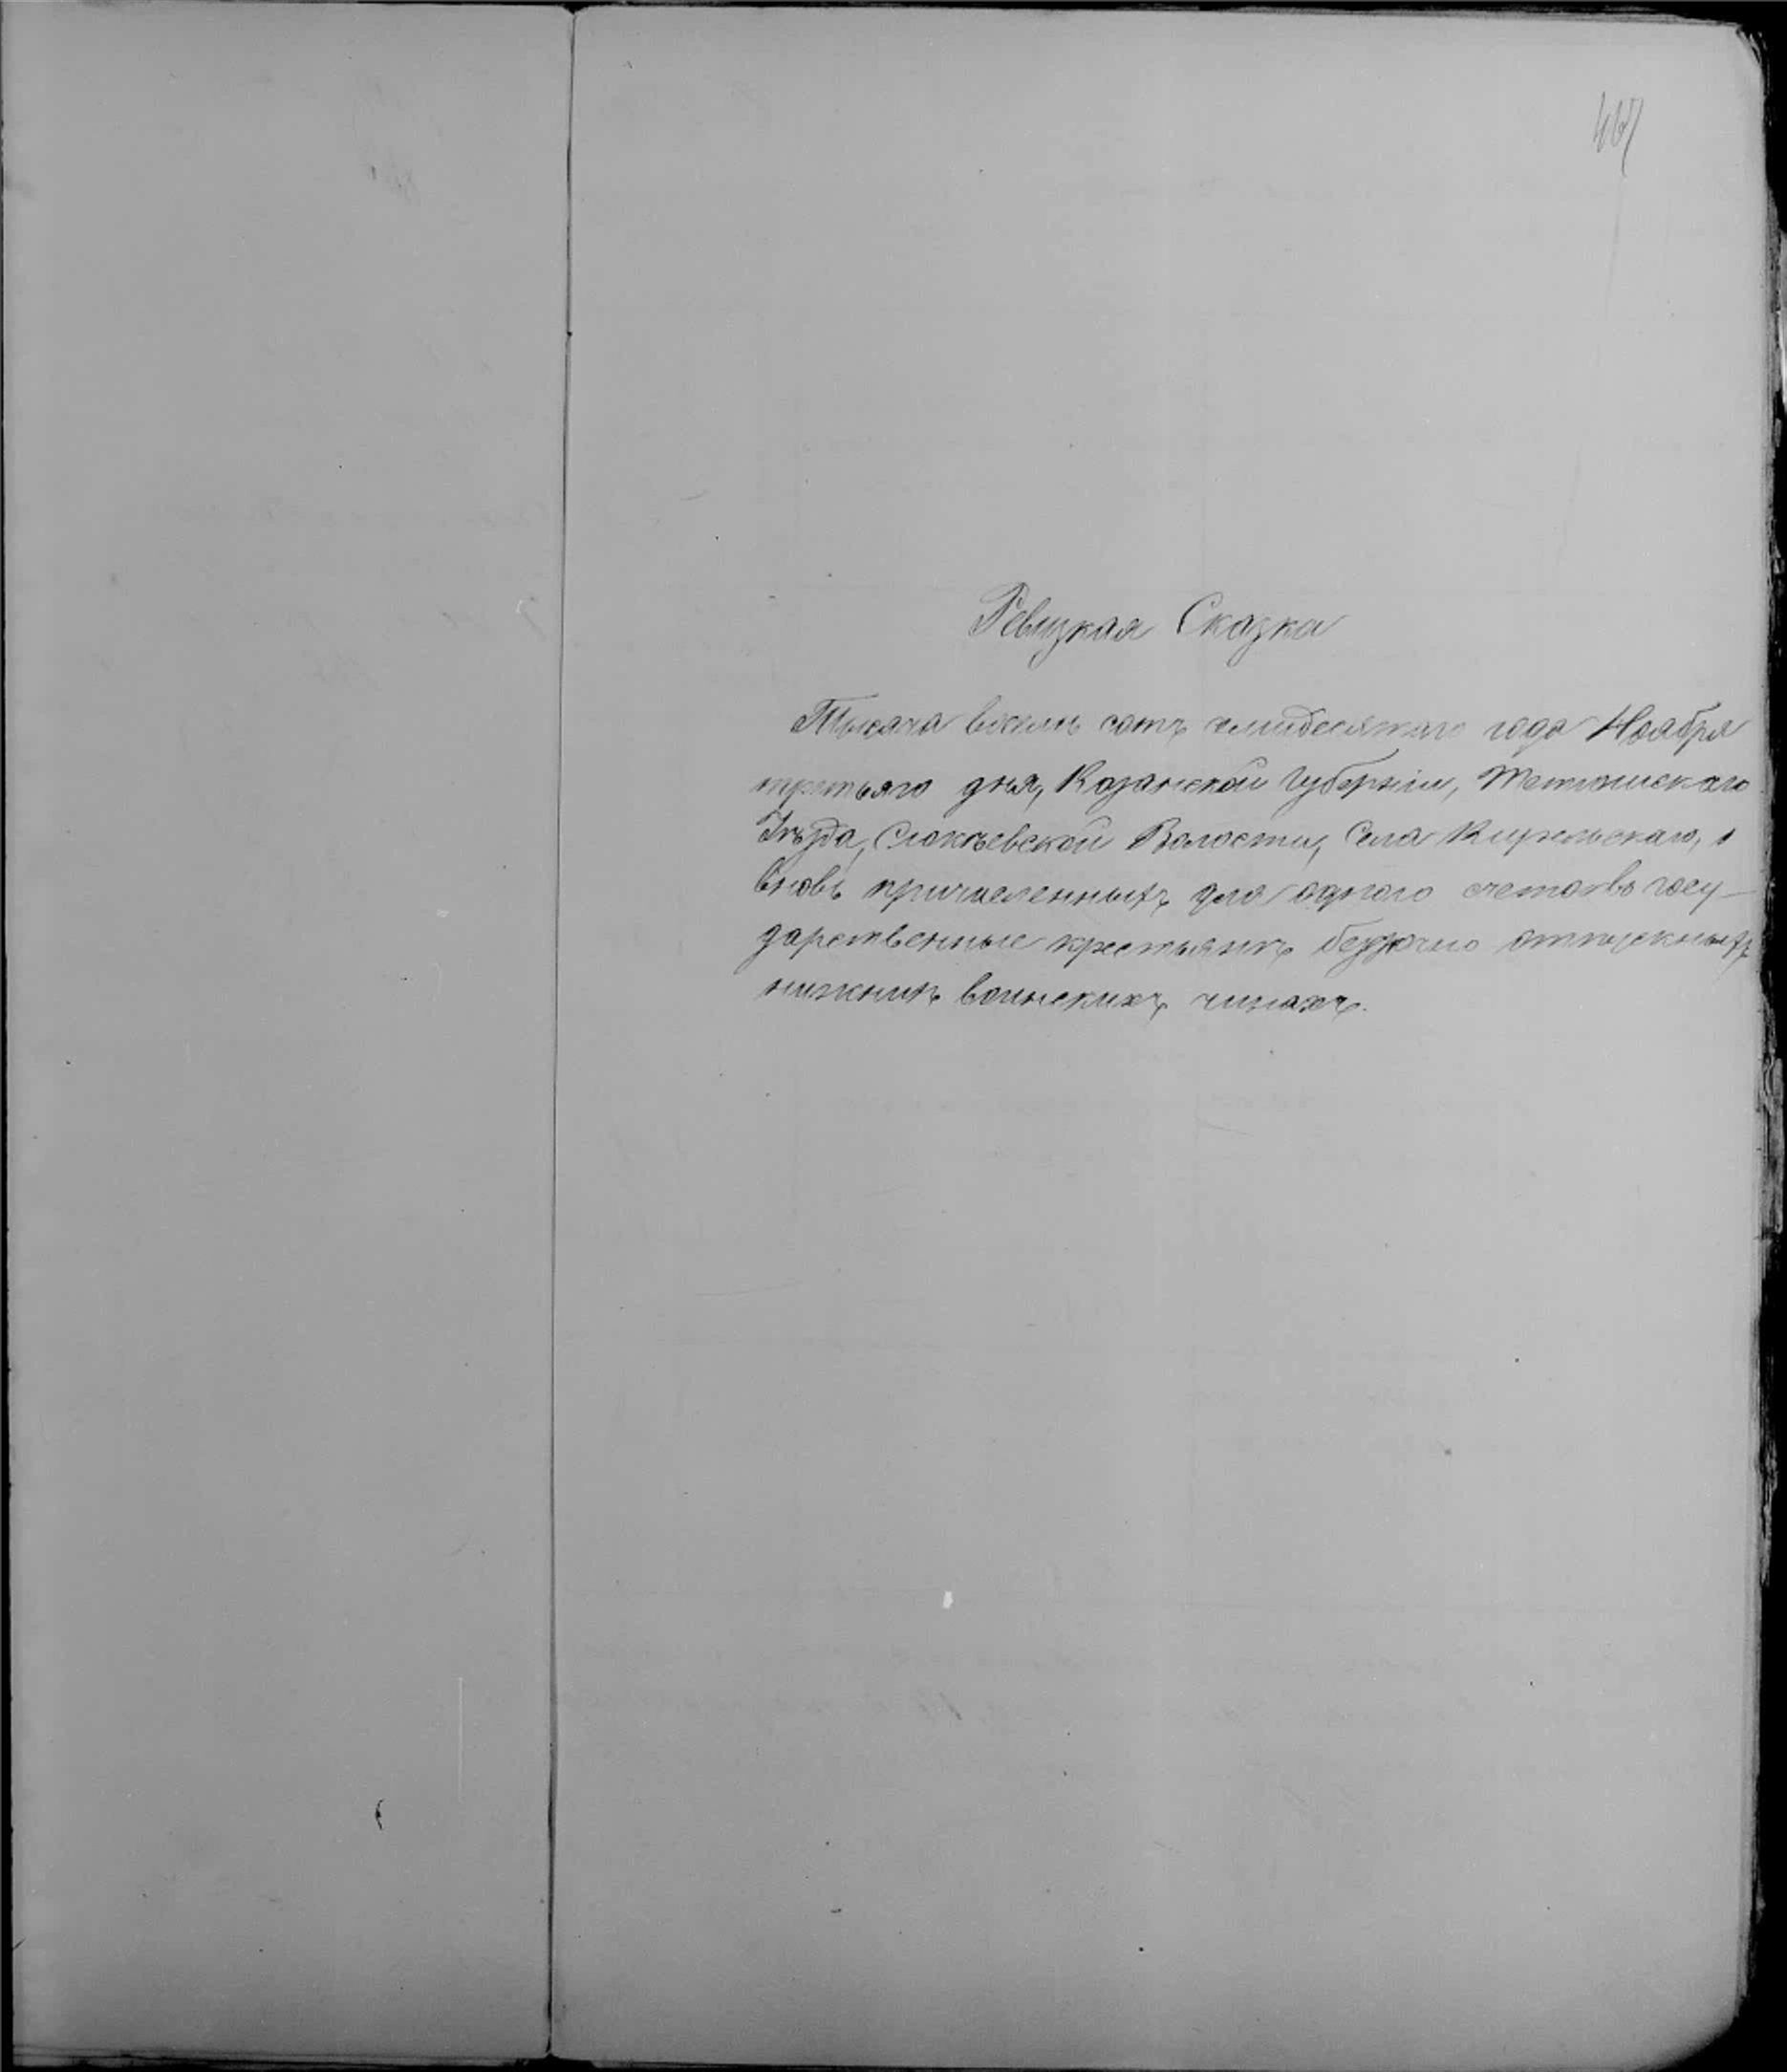 467
Ревизкая Сказка
Тысяча восемь сотъ года Ноября
третьяго дня, Казанской Губерніи, Тетюшскаго
Уѣзда, Сюкѣевской Волости, Села Кирельскаго, о
вновь причисленныхъ для одного счета въ госу-
дарственные крестьянъ безсрочно отпускныхъ
нижнихъ воинскихъ чинахъ.